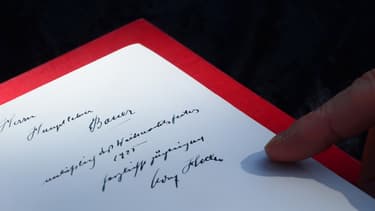 Herrn
Hauptlehrer
Bauer
anläßlich des Weihnachtsfestes
1925
herzlichst
Adolf Hitler